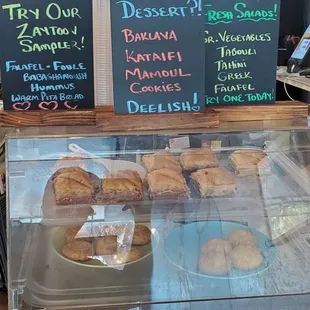 Try Our
Zaytoon
Sampler!
Falafel - Foule
Babaghanoush
Hummus
Warm Pita Bread
Dessert?!
Baklava
Kataifi
Mamoul
Cookies
Deelish!
Fresh Salads!
Gr. Vegetables
Tabouli
Tahini
Greek
Falafel
Try One Today